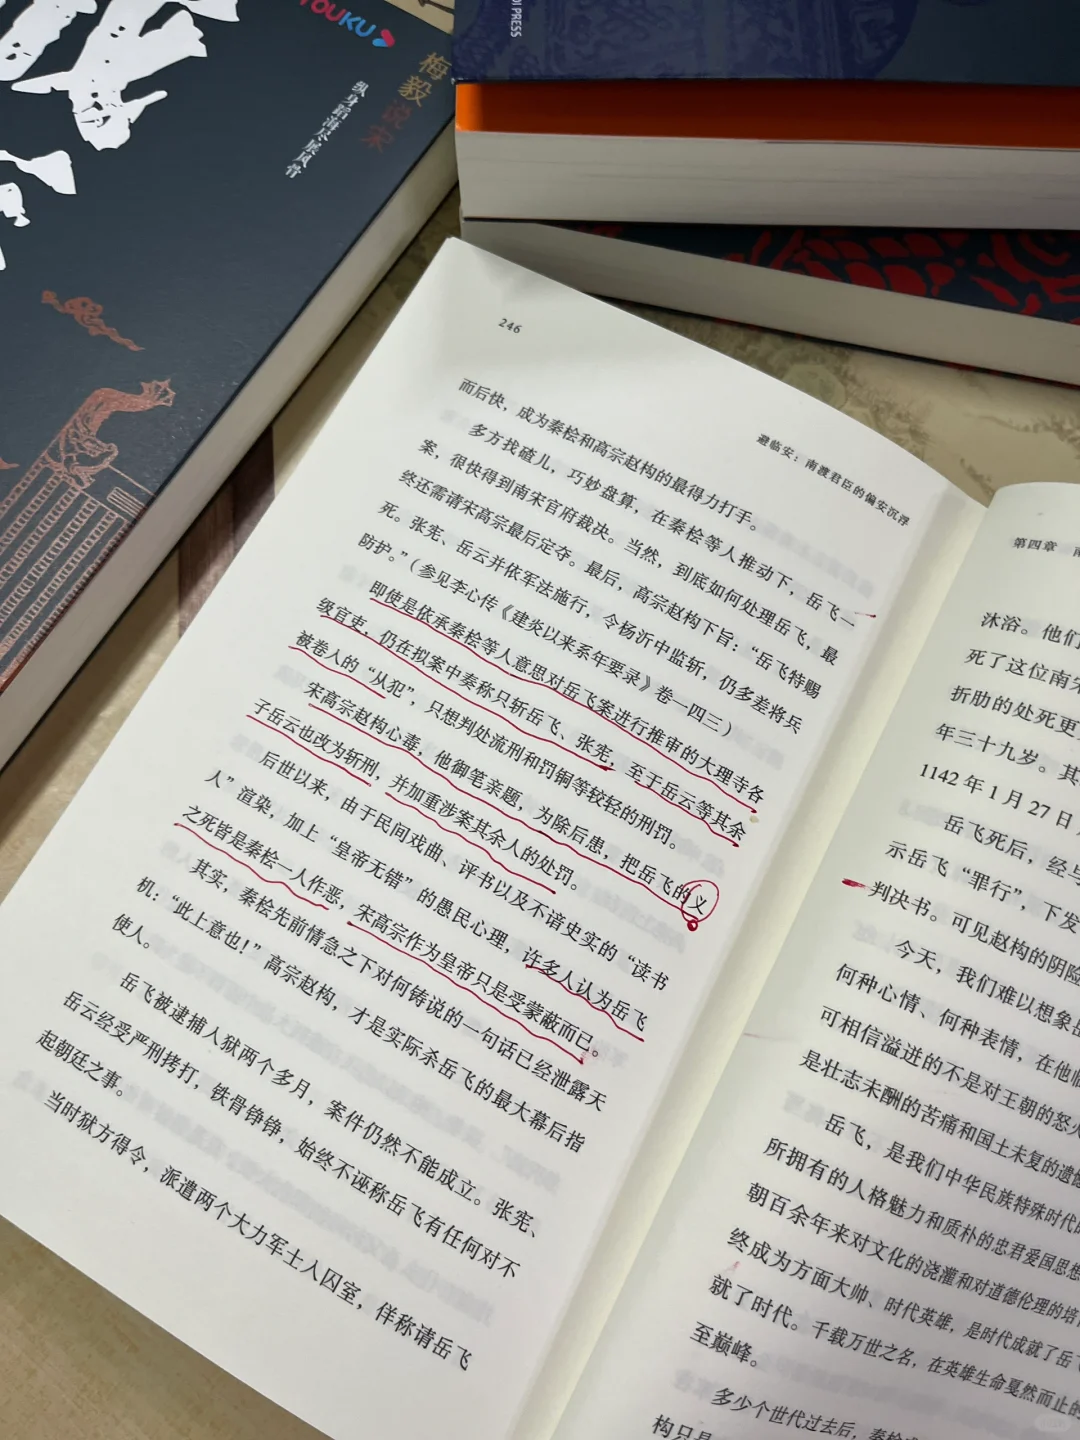 YOUKU
梅毅说宋
纵身蹈海尽展风骨
DI PRESS
246
避临安：南渡君臣的偏安沉浮
而后快，成为秦桧和高宗赵构的最得力打手。
多方找碴儿，巧妙盘算，在秦桧等人推动下，岳飞一
案，很快得到南宋官府裁决。当然，到底如何处理岳飞，最
终还需请宋高宗最后定夺。最后，高宗赵构下旨：“岳飞特赐
死。张宪、岳云并依军法施行，令杨沂中监斩，仍多差将兵
防护。”（参见李心传《建炎以来系年要录》卷一四三）
即使是依承秦桧等人意思对岳飞案进行推审的大理寺各
级官吏，仍在拟案中奏称只斩岳飞、张宪，至于岳云等其余
被卷人的“从犯”，只想判处流刑和罚铜等较轻的刑罚。
宋高宗赵构心毒，他御笔亲题，为除后患，把岳飞的义
子岳云也改为斩刑，并加重涉案其余人的处罚。
后世以来，由于民间戏曲、评书以及不谙史实的“读书
人”渲染，加上“皇帝无错”的愚民心理，许多人认为岳飞
之死皆是秦桧一人作恶，宋高宗作为皇帝只是受蒙蔽而已。
其实，秦桧先前情急之下对何铸说的一句话已经泄露天
机：“此上意也！”高宗赵构，才是实际杀岳飞的最大幕后指
使人。
岳飞被逮捕人狱两个多月，案件仍然不能成立。张宪、
岳云经受严刑拷打，铁骨铮铮，始终不诬称岳飞有任何对不
起朝廷之事。
当时狱方得令，派遣两个大力军士人囚室，佯称请岳飞
第四章
沐浴。他们
死了这位南宋
折肋的处死更
年三十九岁。其
1142年1月27日
岳飞死后，经与
示岳飞“罪行”，下发
判决书。可见赵构的阴险
今天，我们难以想象岳
何种心情、何种表情，在他临
可相信溢进的不是对王朝的怒火
是壮志未酬的苦痛和国土未复的遗憾
岳飞，是我们中华民族特殊时代的
所拥有的人格魅力和质朴的忠君爱国思想
朝百余年来对文化的浇灌和对道德伦理的培
终成为方面大帅、时代英雄，是时代成就了岳飞
就了时代。千载万世之名，在英雄生命戛然而止的
至巅峰。
多少个世代过去后，秦桧
构只是